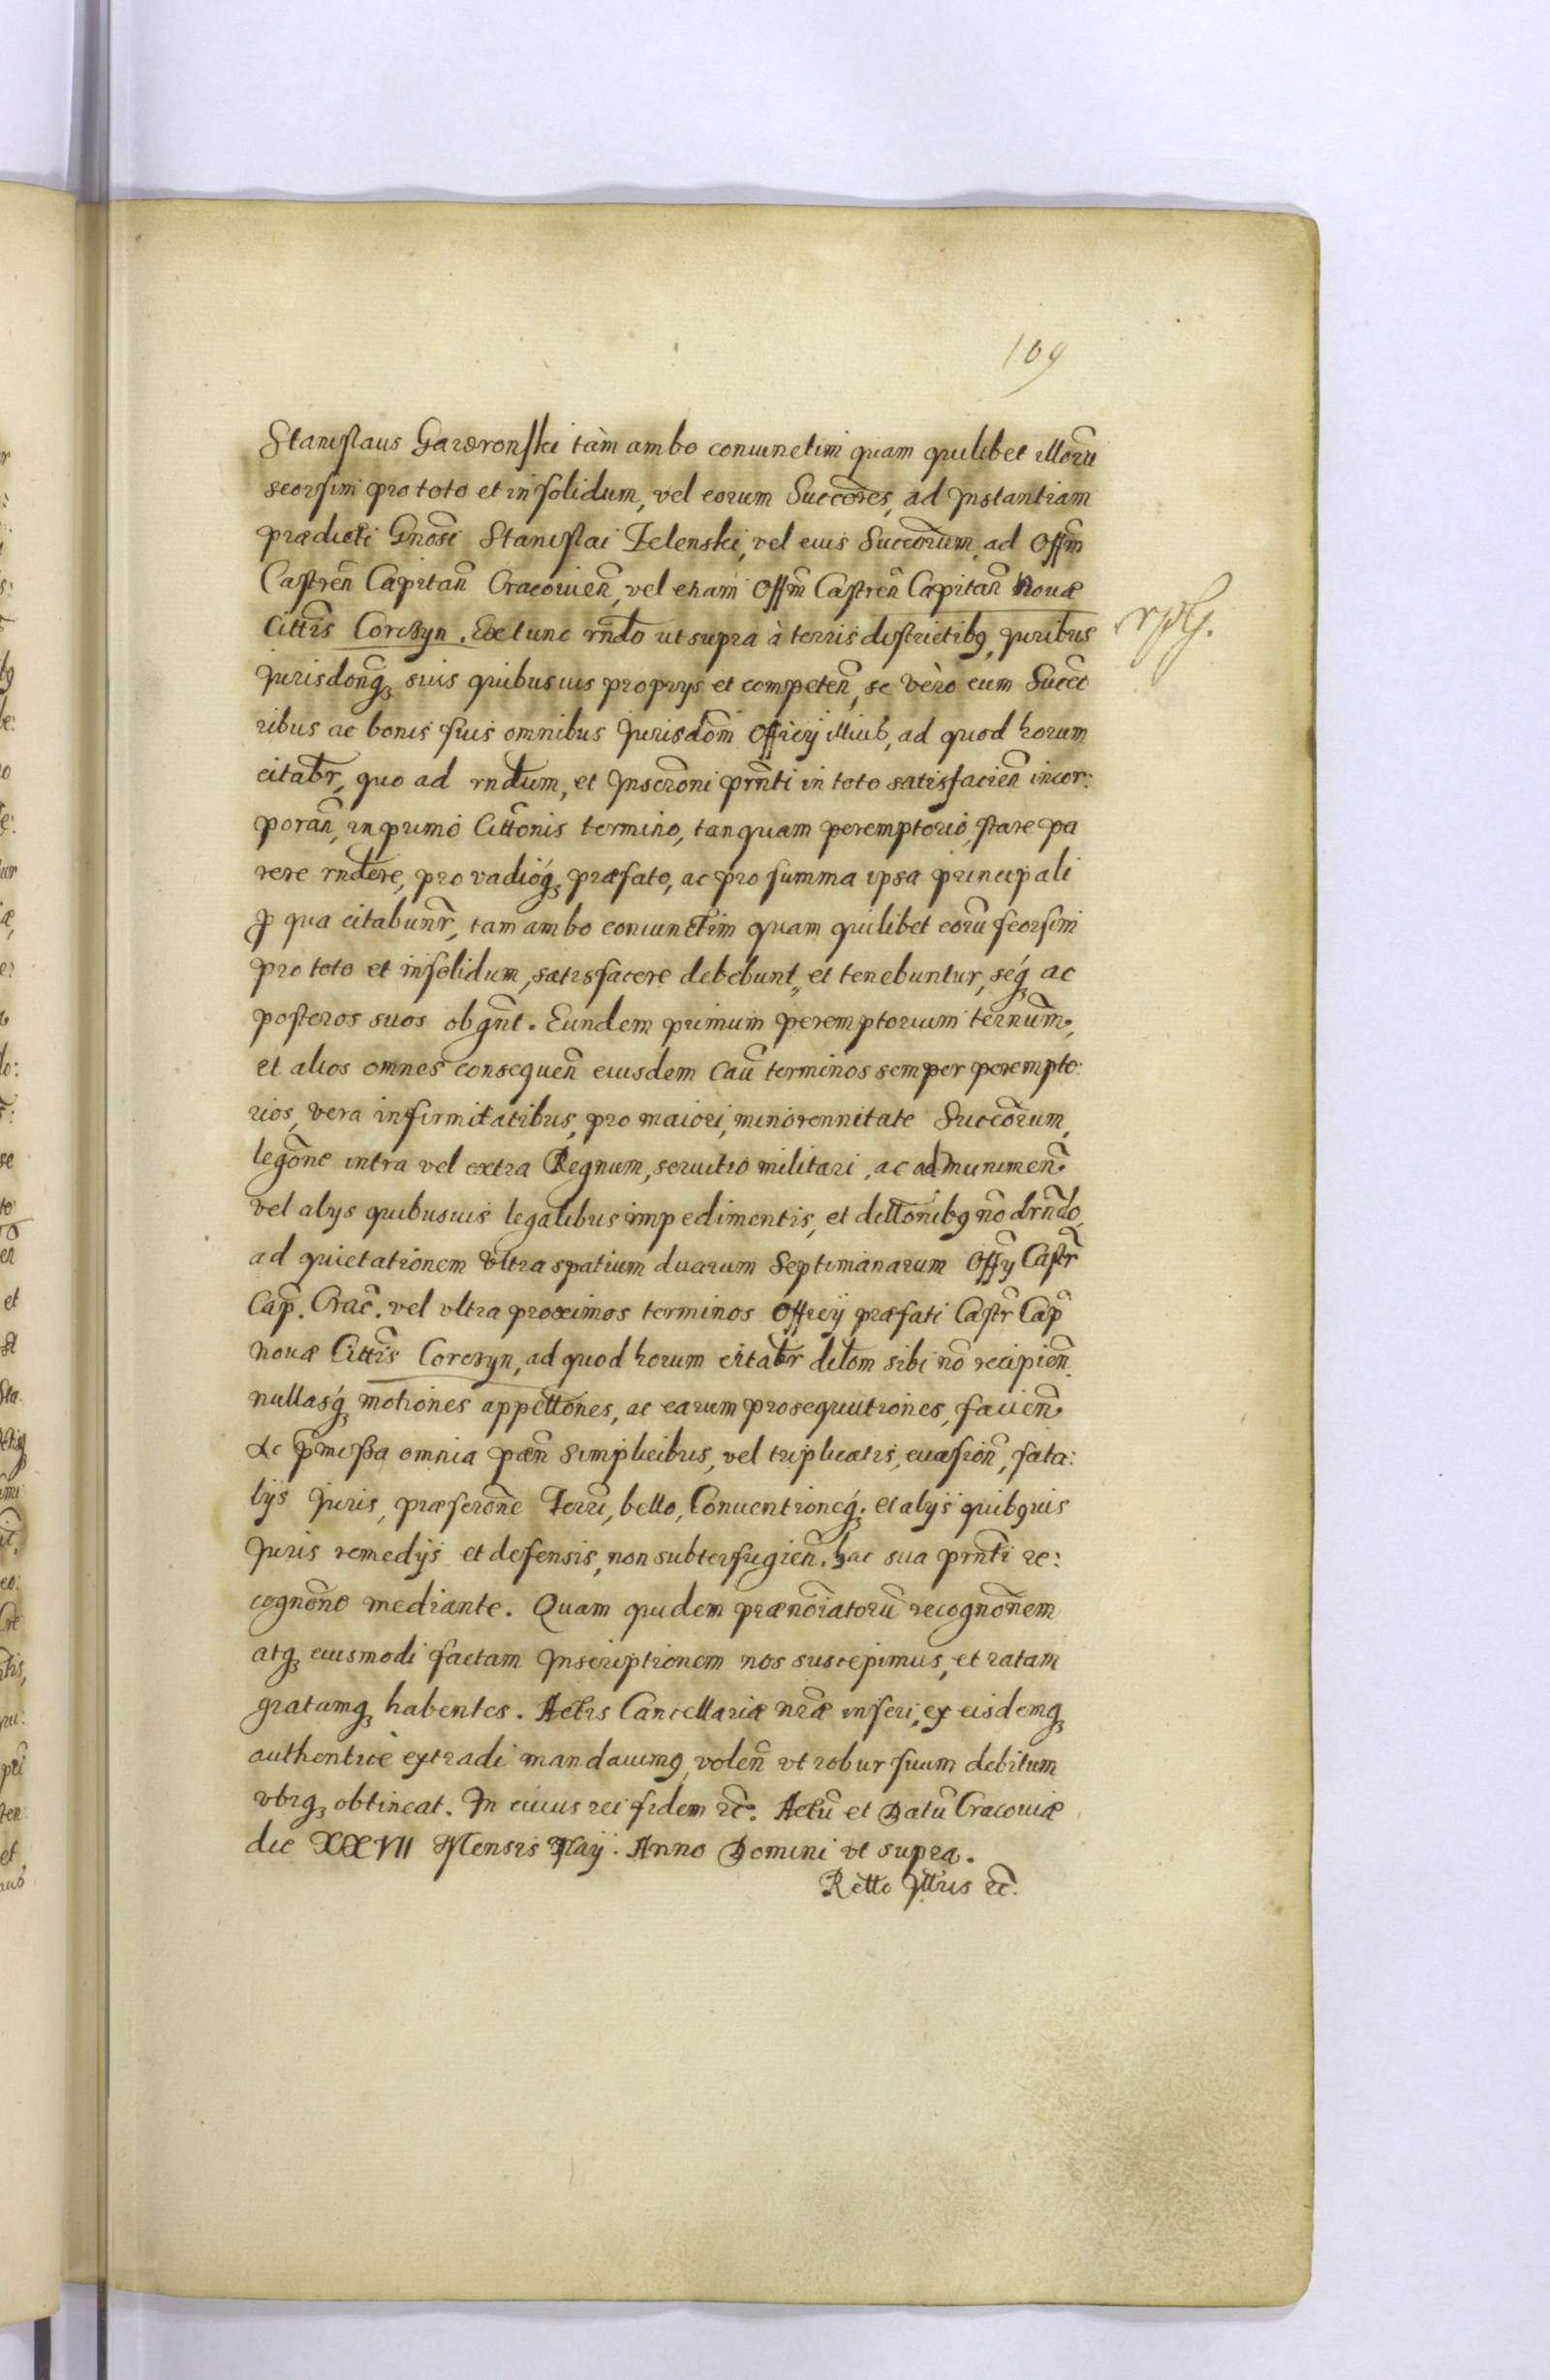 109
Stanislaus Gawronski tàm ambo coniunctim quam quilibet illorũ
seorsim pro toto et insolidum, vel eorum Succores, ad Instantiam
prædicti Gnosi Stanislai Zelenski, vel eius Succorum, ad Offm
Castren̄ Capitan̄ Cracouien̄, vel etiam Offm̄ Castren̄ Capitan̄ Nouæ
Citttis Corczyn. Extunc rndo ut supra à terris districtibꝫ, Juribus
Jurisdonqꝫ suis quibusuis proprys et competen̄, se vèro cum Succc
ribus ac bonis suis omnibus Jurisdom̄ Officÿ illius, ad quod horum
citabr, quo ad rndum, et Inscroni prn̄ti in toto satisfacien̄ incor:
poran̄, in primo Cittonis termino, tanquam peremptorio, stare pa
rere rndere, pro vadióqꝫ præfato, ac pro summa ipsa principali
ꝓ qua citabunr̄, tam ambo coniunctim quam quilibet eorũ seorsim
pro toto et insolidum, satisfacere debebunt, et tenebuntur, seqꝫ ac
posteros suos obgn̄t. Eundem primum peremptorium ternum̄,
et alios omnes consequen̄ eiusdem Cau̅ terminos semper perempto:
rios, vera infirmitatibus, pro maiori, minorennitate Succorum,
legõne intra vel extra Regnum, seruitio militari, ac ad munimen̄
vel alys quibusuis legalibus impedimentis, et dillonibꝫ nõ drndo
ad quietationem vltra spatium duarum Septimanarum Offy Castr̄
Cap̄. Crac̄. vel vltra proximos terminos Officÿ præfati Castr̄ Cap̄
nouæ Cittis Corczyn, ad quod horum citabr dilom sibi nõ recipien̄
nullasqꝫ motiones appellones, ac earum prosequutiones, facien̄
Ac p̄missa omnia pæn̄ simplicibus, vel triplicatis, euasion̄, fata:
lÿs Juris, præscrone Terrr̄, bello, Conuentioneqꝫ: et alÿs quibꝫuis
Juris remedÿs et defensis, non subterfugien̄. hac sua prn̄ti re:
cognõne mediante. Quam quidem prænoĩatorũ recognõnem
atqꝫ eiusmodi factam Inscriptionem nos suscepimus, et ratam
gratamqꝫ habentes. Actis Cancellariæ nr̄æ inseri, ex eisdemqꝫ
authenticè extradi mandauimꝫ, volen̄ vt robur suum debitum
vbiqꝫ obtineat. In cuius rei fidem ꝛc̄. Actũ et Datũ Cracouiæ
die XXVII Mensis Maÿ. Anno Domini vt supra.
Retto Ittris ꝛc̄.